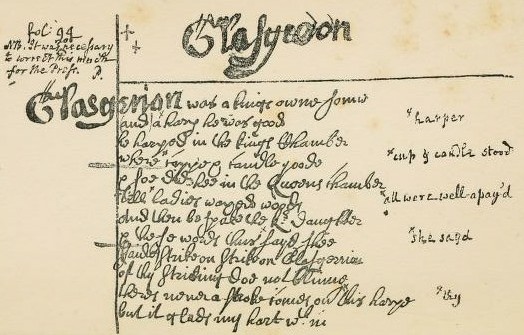 fol: 94
NB. It was necessary
to correct this much
for the Press. P.
Glasgerion
Glasgerion was a kings owne sonne
and a harper he was good
he harped in the kings Chamber
*harper
where cuppe & candle stoode
*cup & candle stood
& soe did hee in the Queens chamber
till ladies waxed wood
*all were well apay'd
and then bespake the Kgs Daughter
& these words thus sayd shee
*she sayd
strike on strike on Glasgerrion
of thy striking doe not blinne
theres never a stroke comes on this harpe
*thy
but it glads my hart within